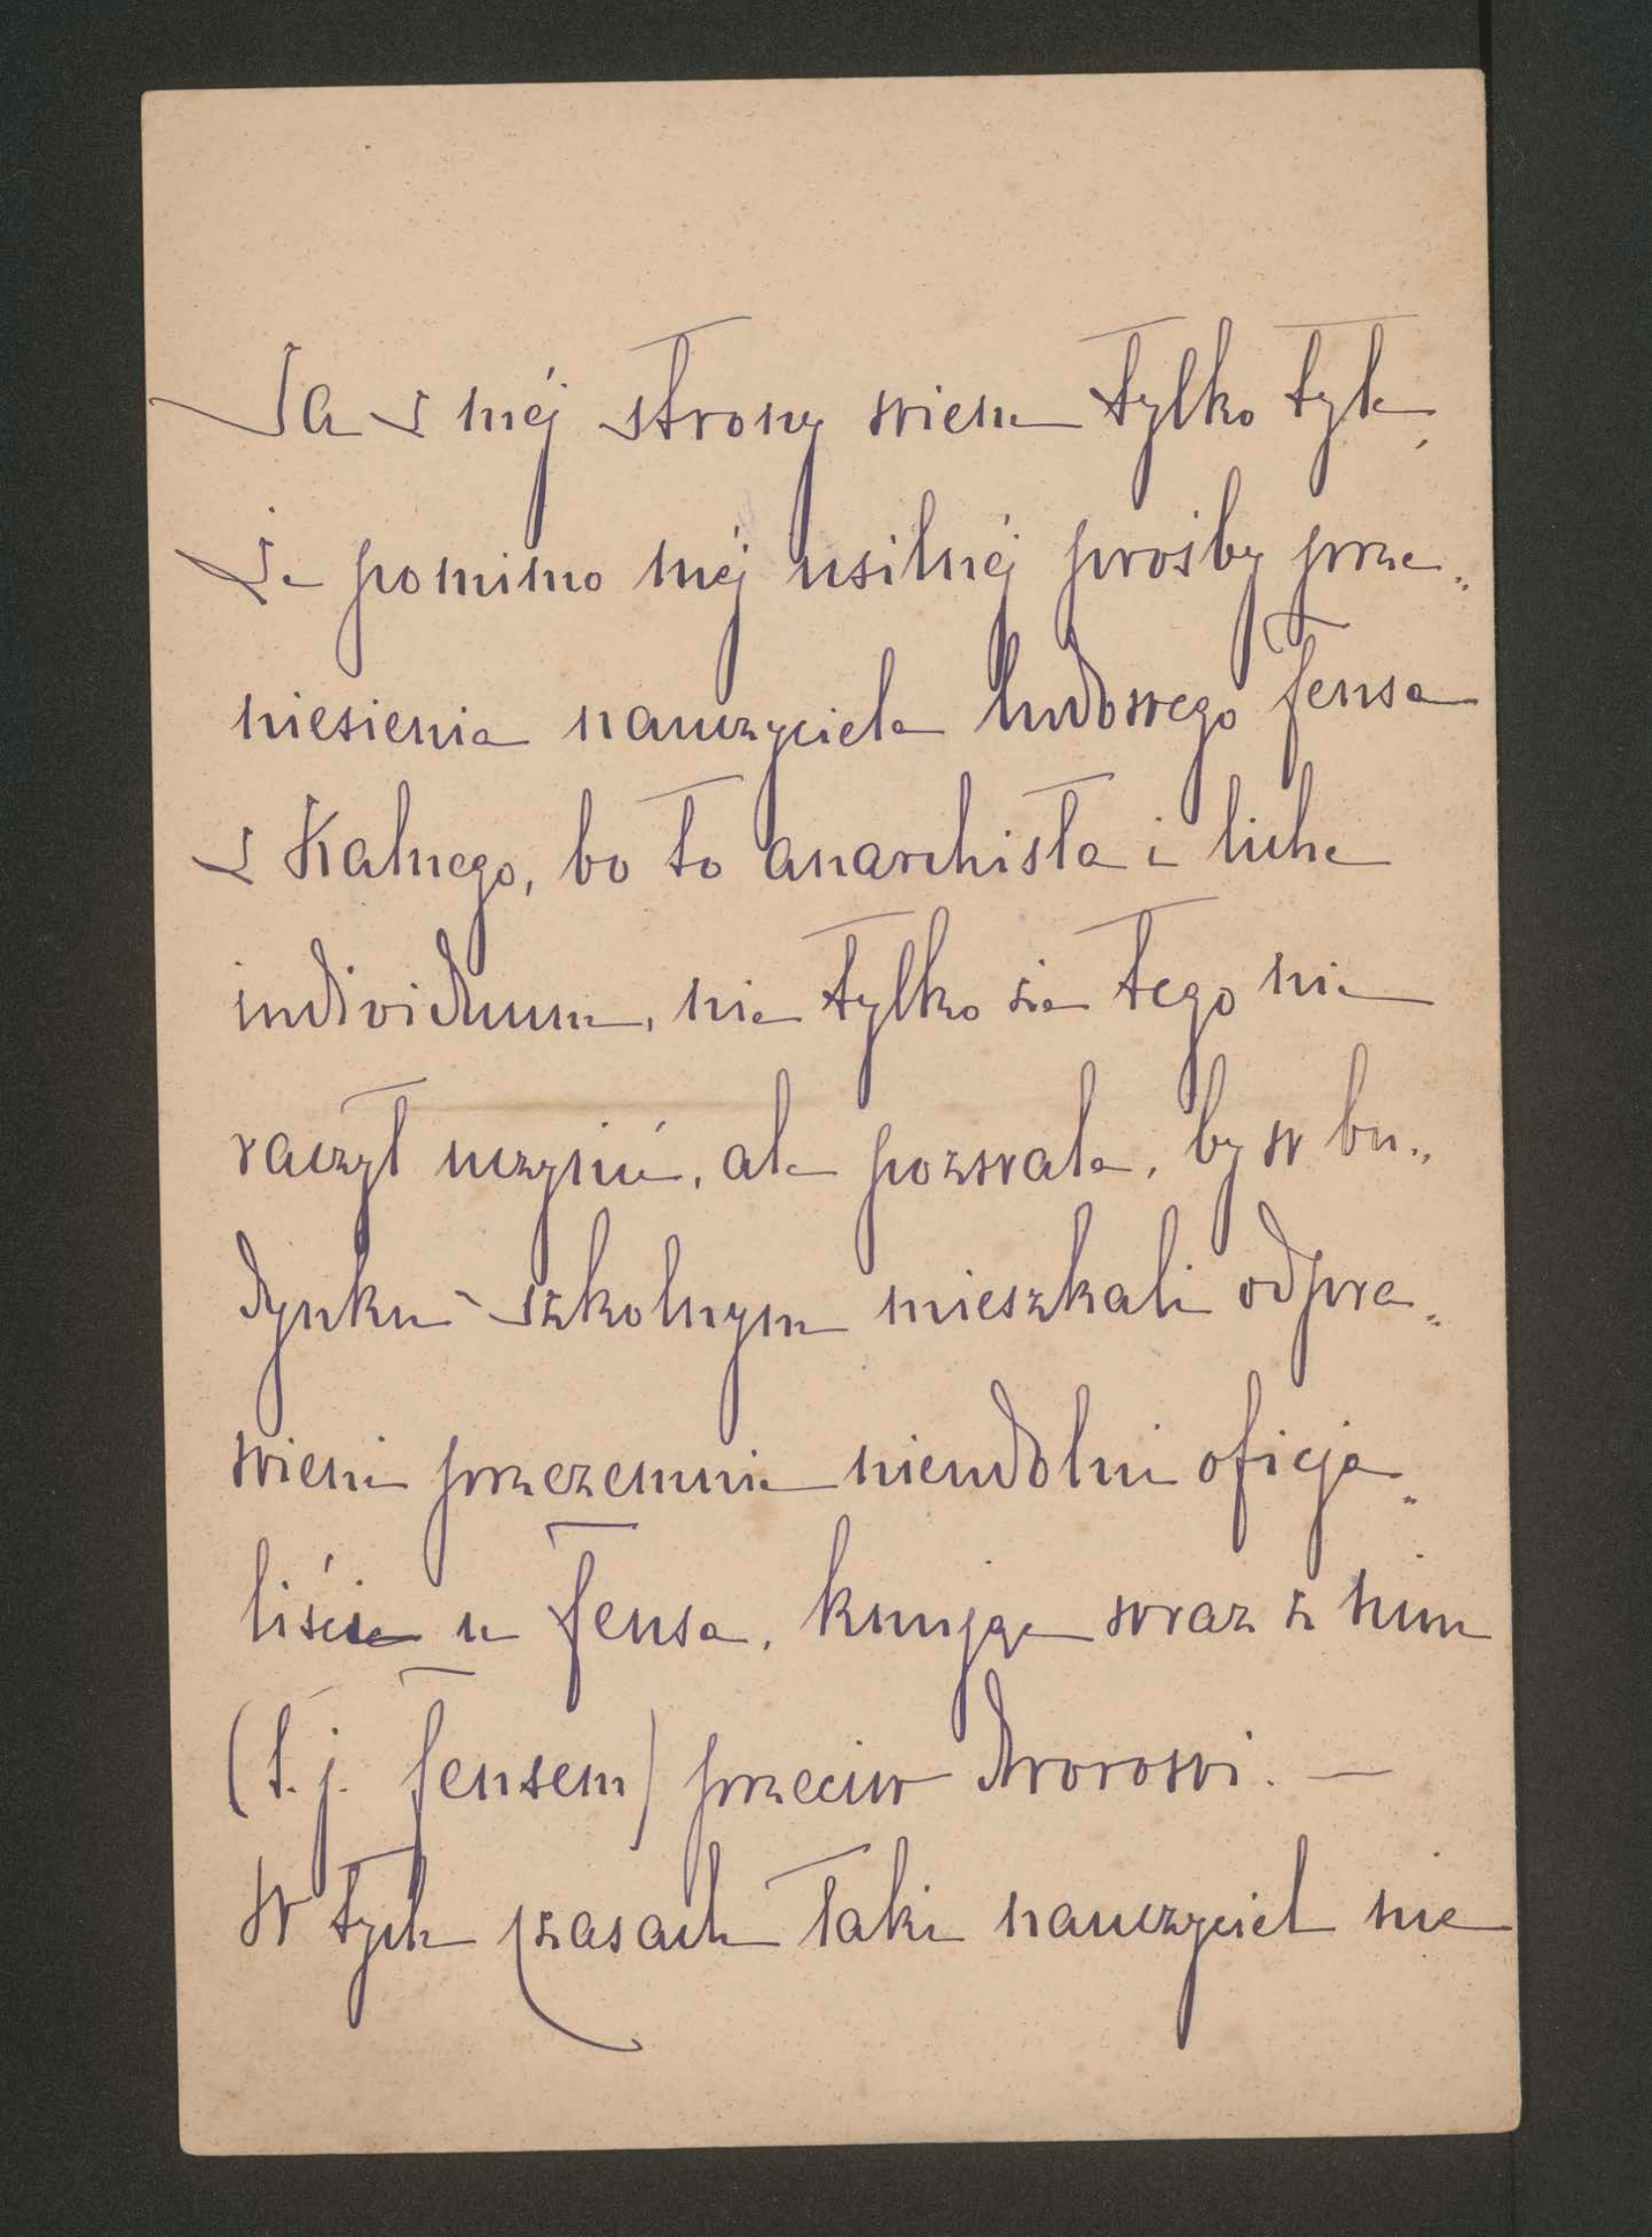 Ja z méj strony wiem tylko tyle,
że pomimo méj usilnéj prośby prze„
niesienia nauczyciela ludowego Fensa
z Kalnego, bo to anarchista i liche
individuum, nie tylko sie tego nie
raczył uczynić, ale pozwala, by w bu„
dynku szkolnym mieszkali odpra„
wieni przezemnie nieudolni oficja„
liście u Fensa, knując wraz z nim
(t.j. Fensem) przeciw dworowi. —
W tych czasach taki nauczyciel nie